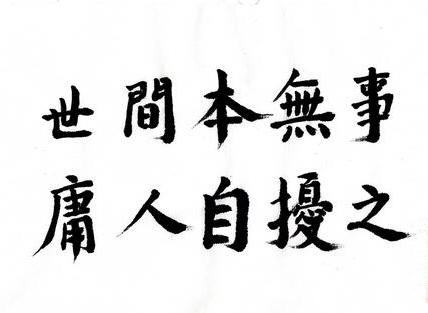 世間本無事
庸人自擾之